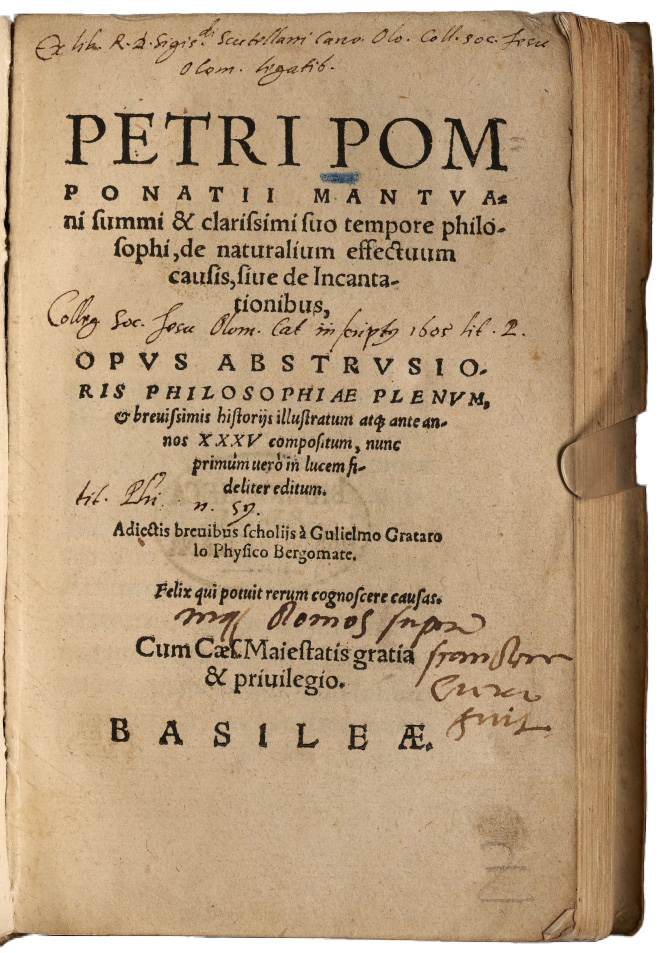 Ex lib. R. D. Sigis.di Scutellarii Cano. Olo. Coll. Soc. Jesu
Olom. legatis.
PETRI POM
PONATII MANTVA⸗
ni ſummi & clariſsimi ſuo tempore philo⸗
ſophi, de naturalium effectuum
cauſis, ſiue de Incanta⸗
tionibus,
Colleg Soc. Jesu Olom. Cat inscriptq 1605 lit. P.
OPVS ABSTRVSIO⸗
RIS PHILOSOPHIAE PLENVM,
& breuiſsimis hiſtorijs illuſtratum atq; ante an⸗
nos XXXV compoſitum, nunc
primùm uerò in lucem fi⸗
deliter editum.
tit. Phi. n. 59.
Adiectis breuibus ſcholijs à Gulielmo Grataro
lo Phyſico Bergomate.
Felix qui potuit rerum cognoſcere cauſas.
supra
Cum Cæſ. Maieſtatis gratia
& priuilegio.
fuit
BASILEÆ.